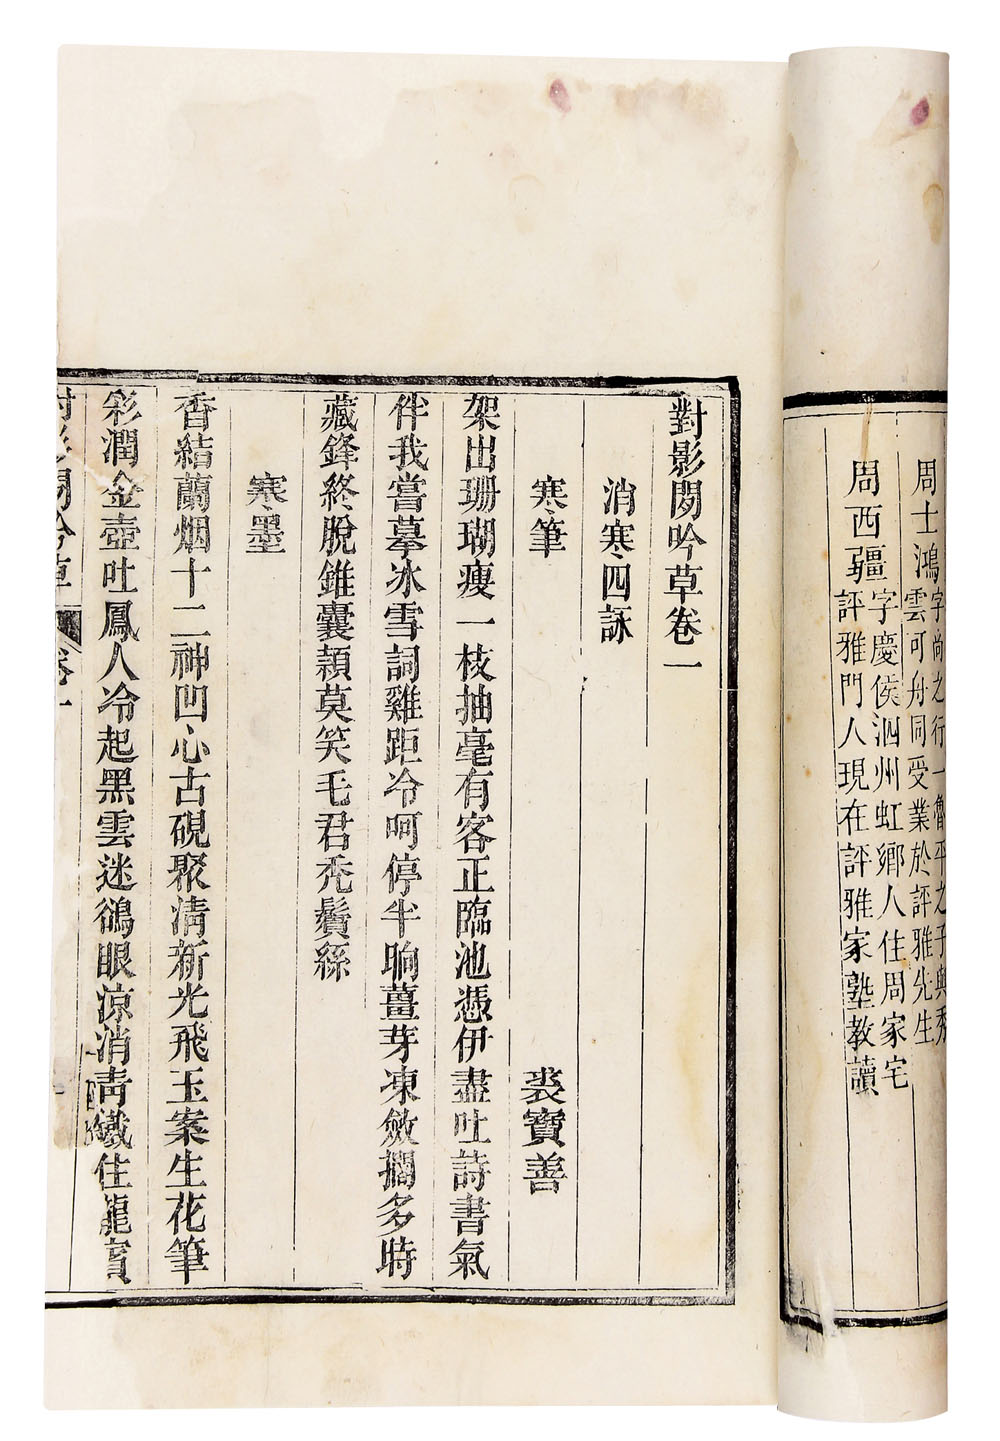 周士鴻字尚之行一魯平之子與秀
雲可舟同受業於評雅先生
周西疆字慶侯泗州虹鄉人住周家宅
評雅門人現在評雅家塾教讀
對影閣吟草卷一
消寒四詠
寒筆
裘寶善
架出珊瑚瘦一枝抽毫有客正臨池憑伊盡吐詩書氣
伴我嘗摹冰雪詞雞距冷呵停半晌薑芽凍斂擱多時
藏鋒終脫錐囊頴莫笑毛君禿鬢絲
寒墨
香結蘭烟十二神凹心古硯聚清新光飛玉案生花筆
彩潤金壺吐鳳人冷起黑雲迷鵒眼凉消靑鐵住龍賓
對影閣吟草
卷一